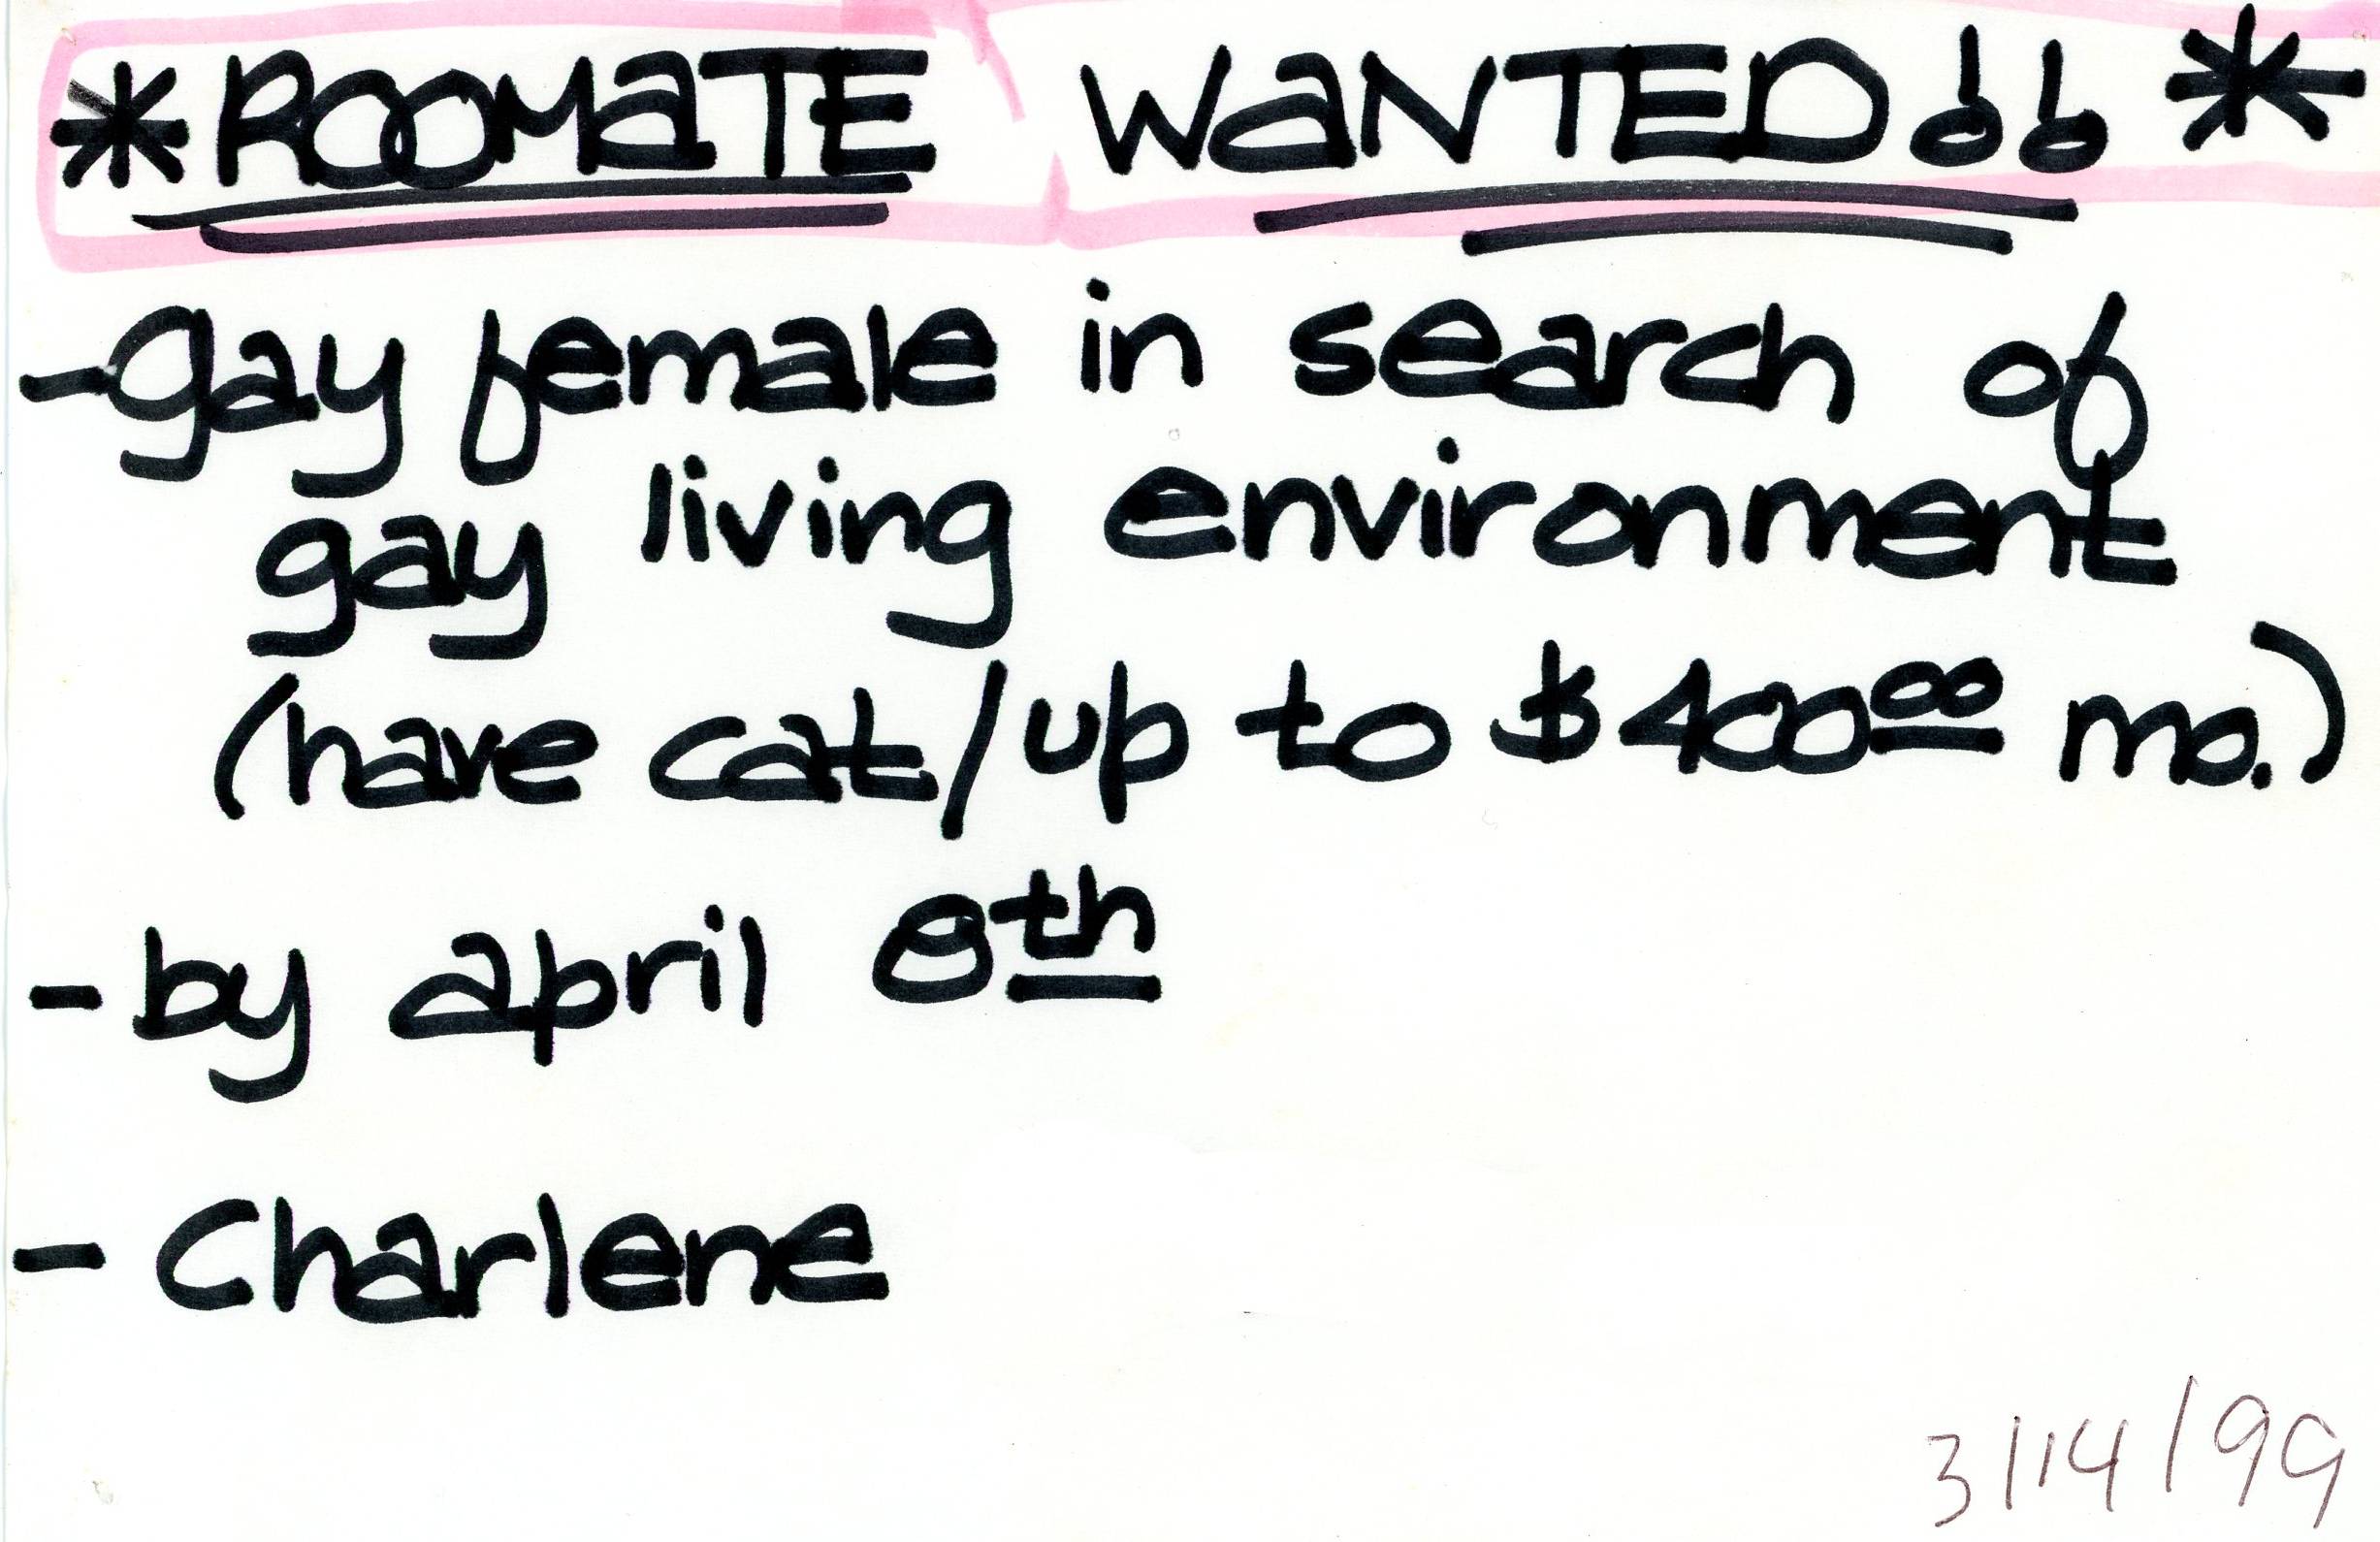 * ROOMaTE WaNTED!! *
-gay female in search of
gay living environment
(have cat/up to $400⁰⁰ mo.)
- by april 8th
- Charlene
3/14/99